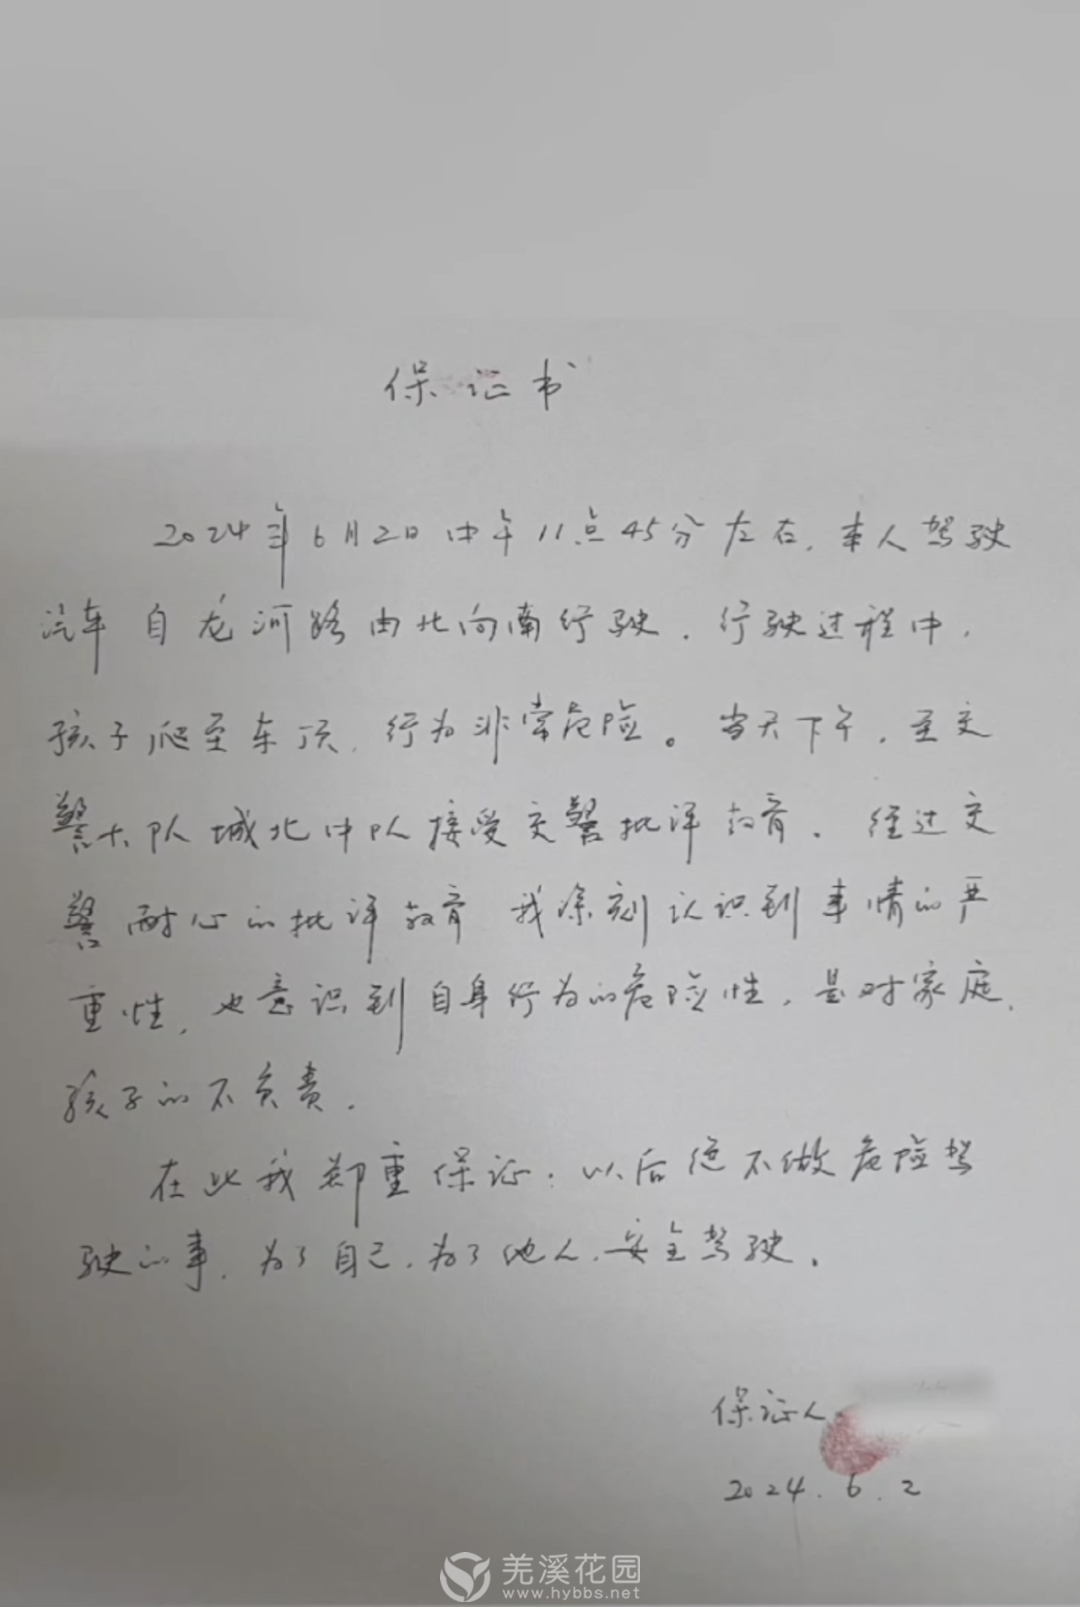 保证书
2024年6月2日中午11点45分左右，本人驾驶
汽车自龙河路由北向南行驶，行驶过程中，
孩子爬至车顶，行为非常危险。当天下午，至交
警大队城北中队接受交警批评教育。经过交
警耐心的批评教育 我深刻认识到事情的严
重性，也意识到自身行为的危险性，是对家庭、
孩子的不负责。
在此我郑重保证：以后绝不做危险驾
驶的事，为了自己，为了他人，安全驾驶。
保证人
2024.6.2
羌溪花园
www.hybbs.net